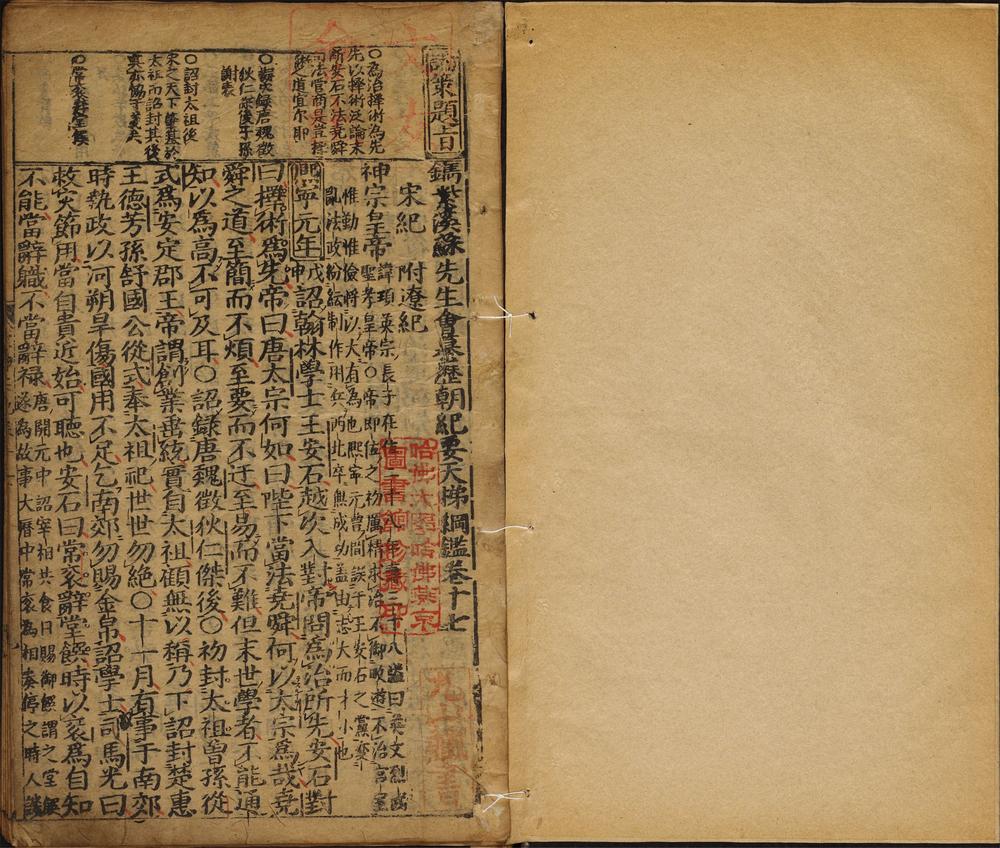 論策題旨
○為治擇術為先
先以擇術泛論末
所安石不法堯舜
○詔錄唐魏徵
狄仁傑後子孫
謝表
○詔封太祖後
宋之天下肇基於
太祖而詔封其後
○常袞辭堂饌
鐫紫溪蘇先生會纂歷朝紀要天梯綱鑑卷十七
宋紀 附遼紀
神宗皇帝 諱頊英宗長子在位十八年壽三十八謚曰英文烈武
聖孝皇帝○帝即位之初厲精求治不御畋遊不治宮室
惟勤惟儉將以大有為也熙寧元豊間誤于王安石之黨變
亂法政紛紜制作用兵西北卒無成功盖由志大而才小也
熙寧元年 戊申 詔翰林學士王安石越次入對帝問為治所先安石對
曰擇術為先帝曰唐太宗何如曰陛下當法堯舜何以太宗為哉堯
舜之道至簡而不煩至要而不迂至易而不難但末世學者不能通
知以為高不可及耳○詔録唐魏徵狄仁傑後○初封太祖曾孫從
式為安定郡王帝謂創業垂統實自太祖顧無以稱乃下詔封楚惠
王德芳孫舒國公從式奉太祖祀世世勿絶○十一月有事于南郊
時執政以河朔旱傷國用不足乞南郊勿賜金帛詔學士司馬光曰
救灾節用當自貴近始可聽也安石曰常袞辭堂饌時以袞為自知
不能當辭職不當辭祿 唐開元中詔宰相共食日賜御饌謂之堂饌
遂為故事大曆中常袞為相奏停之時人譏
哈佛大學哈佛燕京
圖書館珍藏印